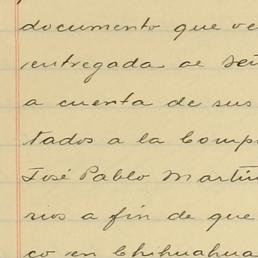 documento que ve
entregada al Señ
a cuenta de sus
tados a la Comp
José Pablo Martín
rios a fin de que
co en Chihuahua